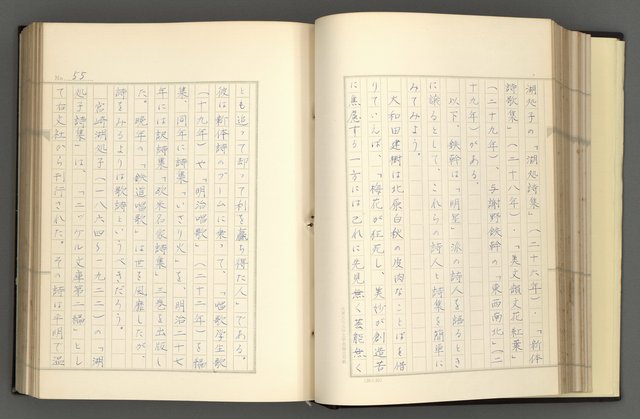 湖処子の「湖処詩集」（二十六年）・「新体
詩歌集」（二十八年）・「美文韻文花紅葉」
（二十九年）、与謝野鉄幹の「東西南北」（二
十九年）がある。
以下、鉄幹は「明星」派の詩人を語るとき
に譲るとして、これらの詩人と詩集を簡単に
みてみよう。
大和田建樹は北原白秋の皮肉なことばを借
りていえば、「梅花が狂死し、美妙が創造苦
に焦慮する一方には己れに先見無く芸能無く
No. 55
とも追って却って利を贏ち得た人」である。
彼は新体詩のブームに乗って、「唱歌学生歌」
（十九年）や「明治唱歌」（二十二年）を編
集、同年に詩集「いさり火」を、明治二十七
年には訳詩集「欧米名家詩集」三巻を出版し
た。晩年の「鉄道唱歌」は世を風靡したが、
詩をみるよりは歌詩というべきだろう。
宮崎湖処子（一八六四～一九二二）の「湖
処子詩集」は、「ニッケル文庫第二編」とし
て右文社から刊行された。その詩は平明で温